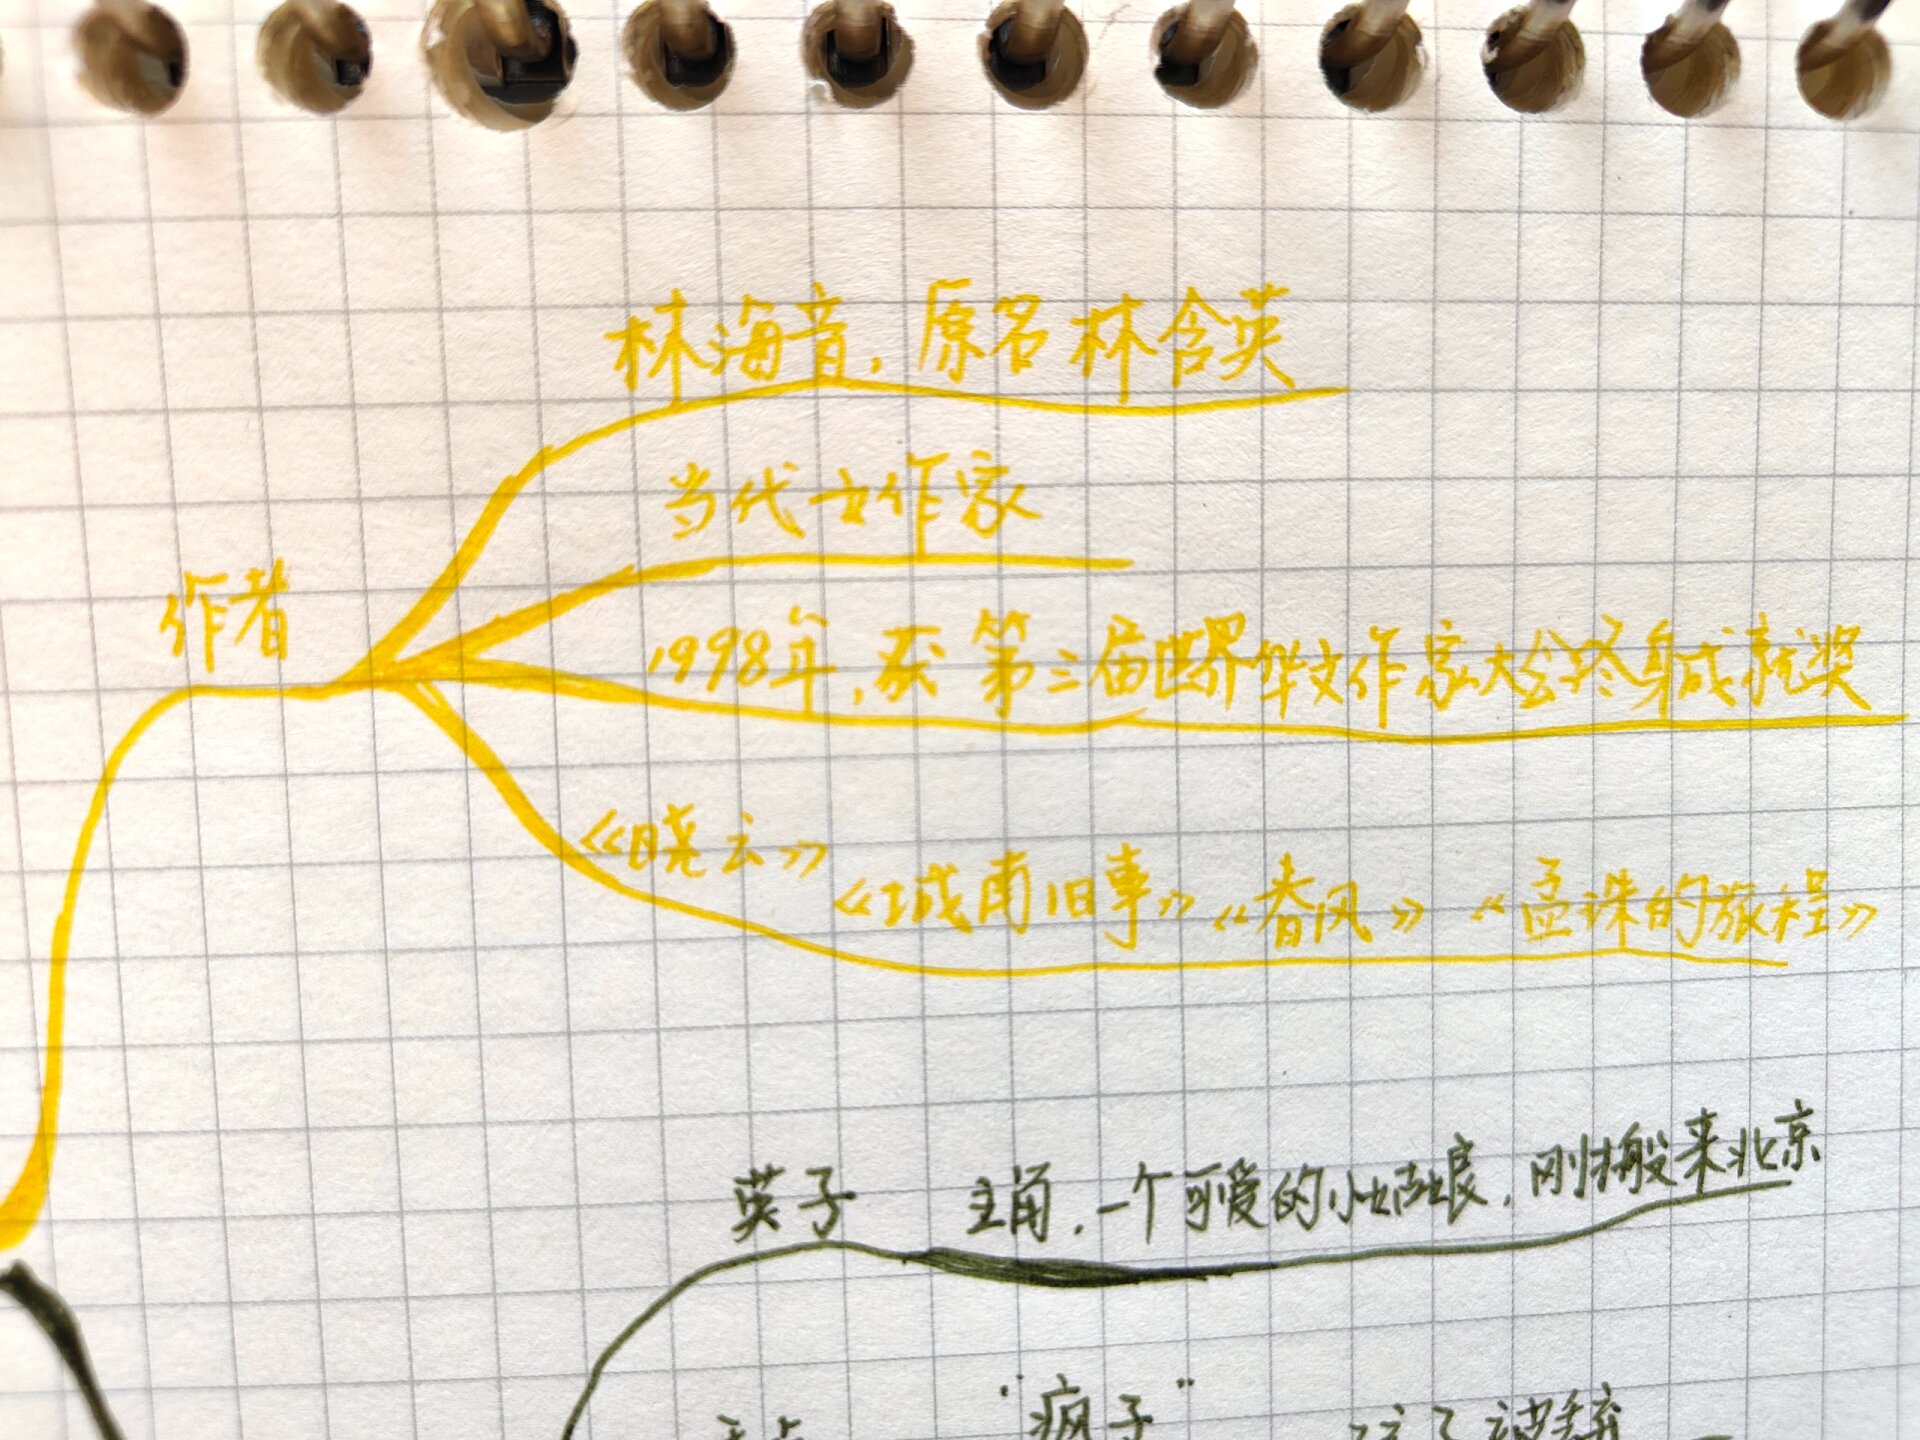 林海音，原名林含英
当代女作家
作者
1998年，获第三届世界华文作家大会终身成就奖
《晓云》
《城南旧事》《春风》《孟珠的旅程》
英子 主角，一个可爱的小姑娘，刚搬来北京
"疯子"
孩子被丢弃